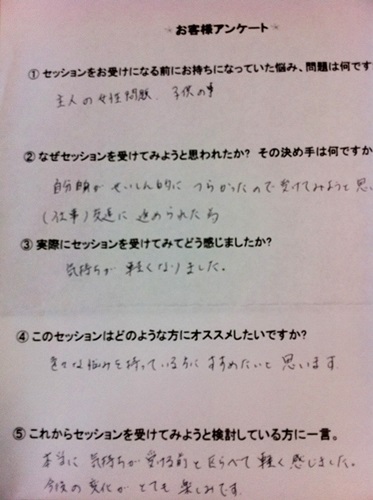 お客様アンケート
① セッションをお受けになる前にお持ちになっていた悩み、問題は何です
主人の女性問題、子供の事
② なぜセッションを受けてみようと思われたか? その決め手は何ですか
自分自身がせいしん的につらかったので受けてみようと思
(仕事)友達に進められた為
③ 実際にセッションを受けてみてどう感じましたか?
気持ちが軽くなりました。
④ このセッションはどのような方にオススメしたいですか?
な悩みを持っている方にすすめたいと思います
⑤ これからセッションを受けてみようと検討している方に一言。
本当に気持ちが受ける前とくらべて軽く感じました。
今後の変化がとても楽しみです。